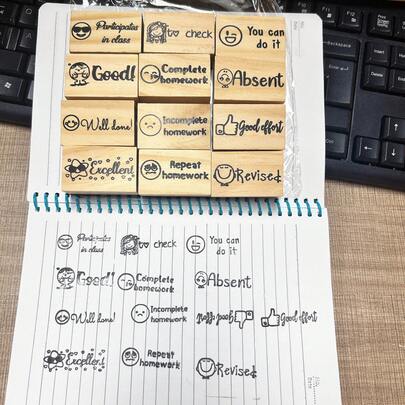 Participates
in class
to check
You can
do it
Good!
Complete
homework
Absent
Well done!
Incomplete
homework
Good effort
Excellent!
Repeat
homework
Revised
Participates
in class
to check
You can
do it
Good!
Complete
homework
Absent
Well done!
Incomplete
homework
Good effort
Good effort
Excellent!
Repeat
homework
Revised
Backspace
Enter